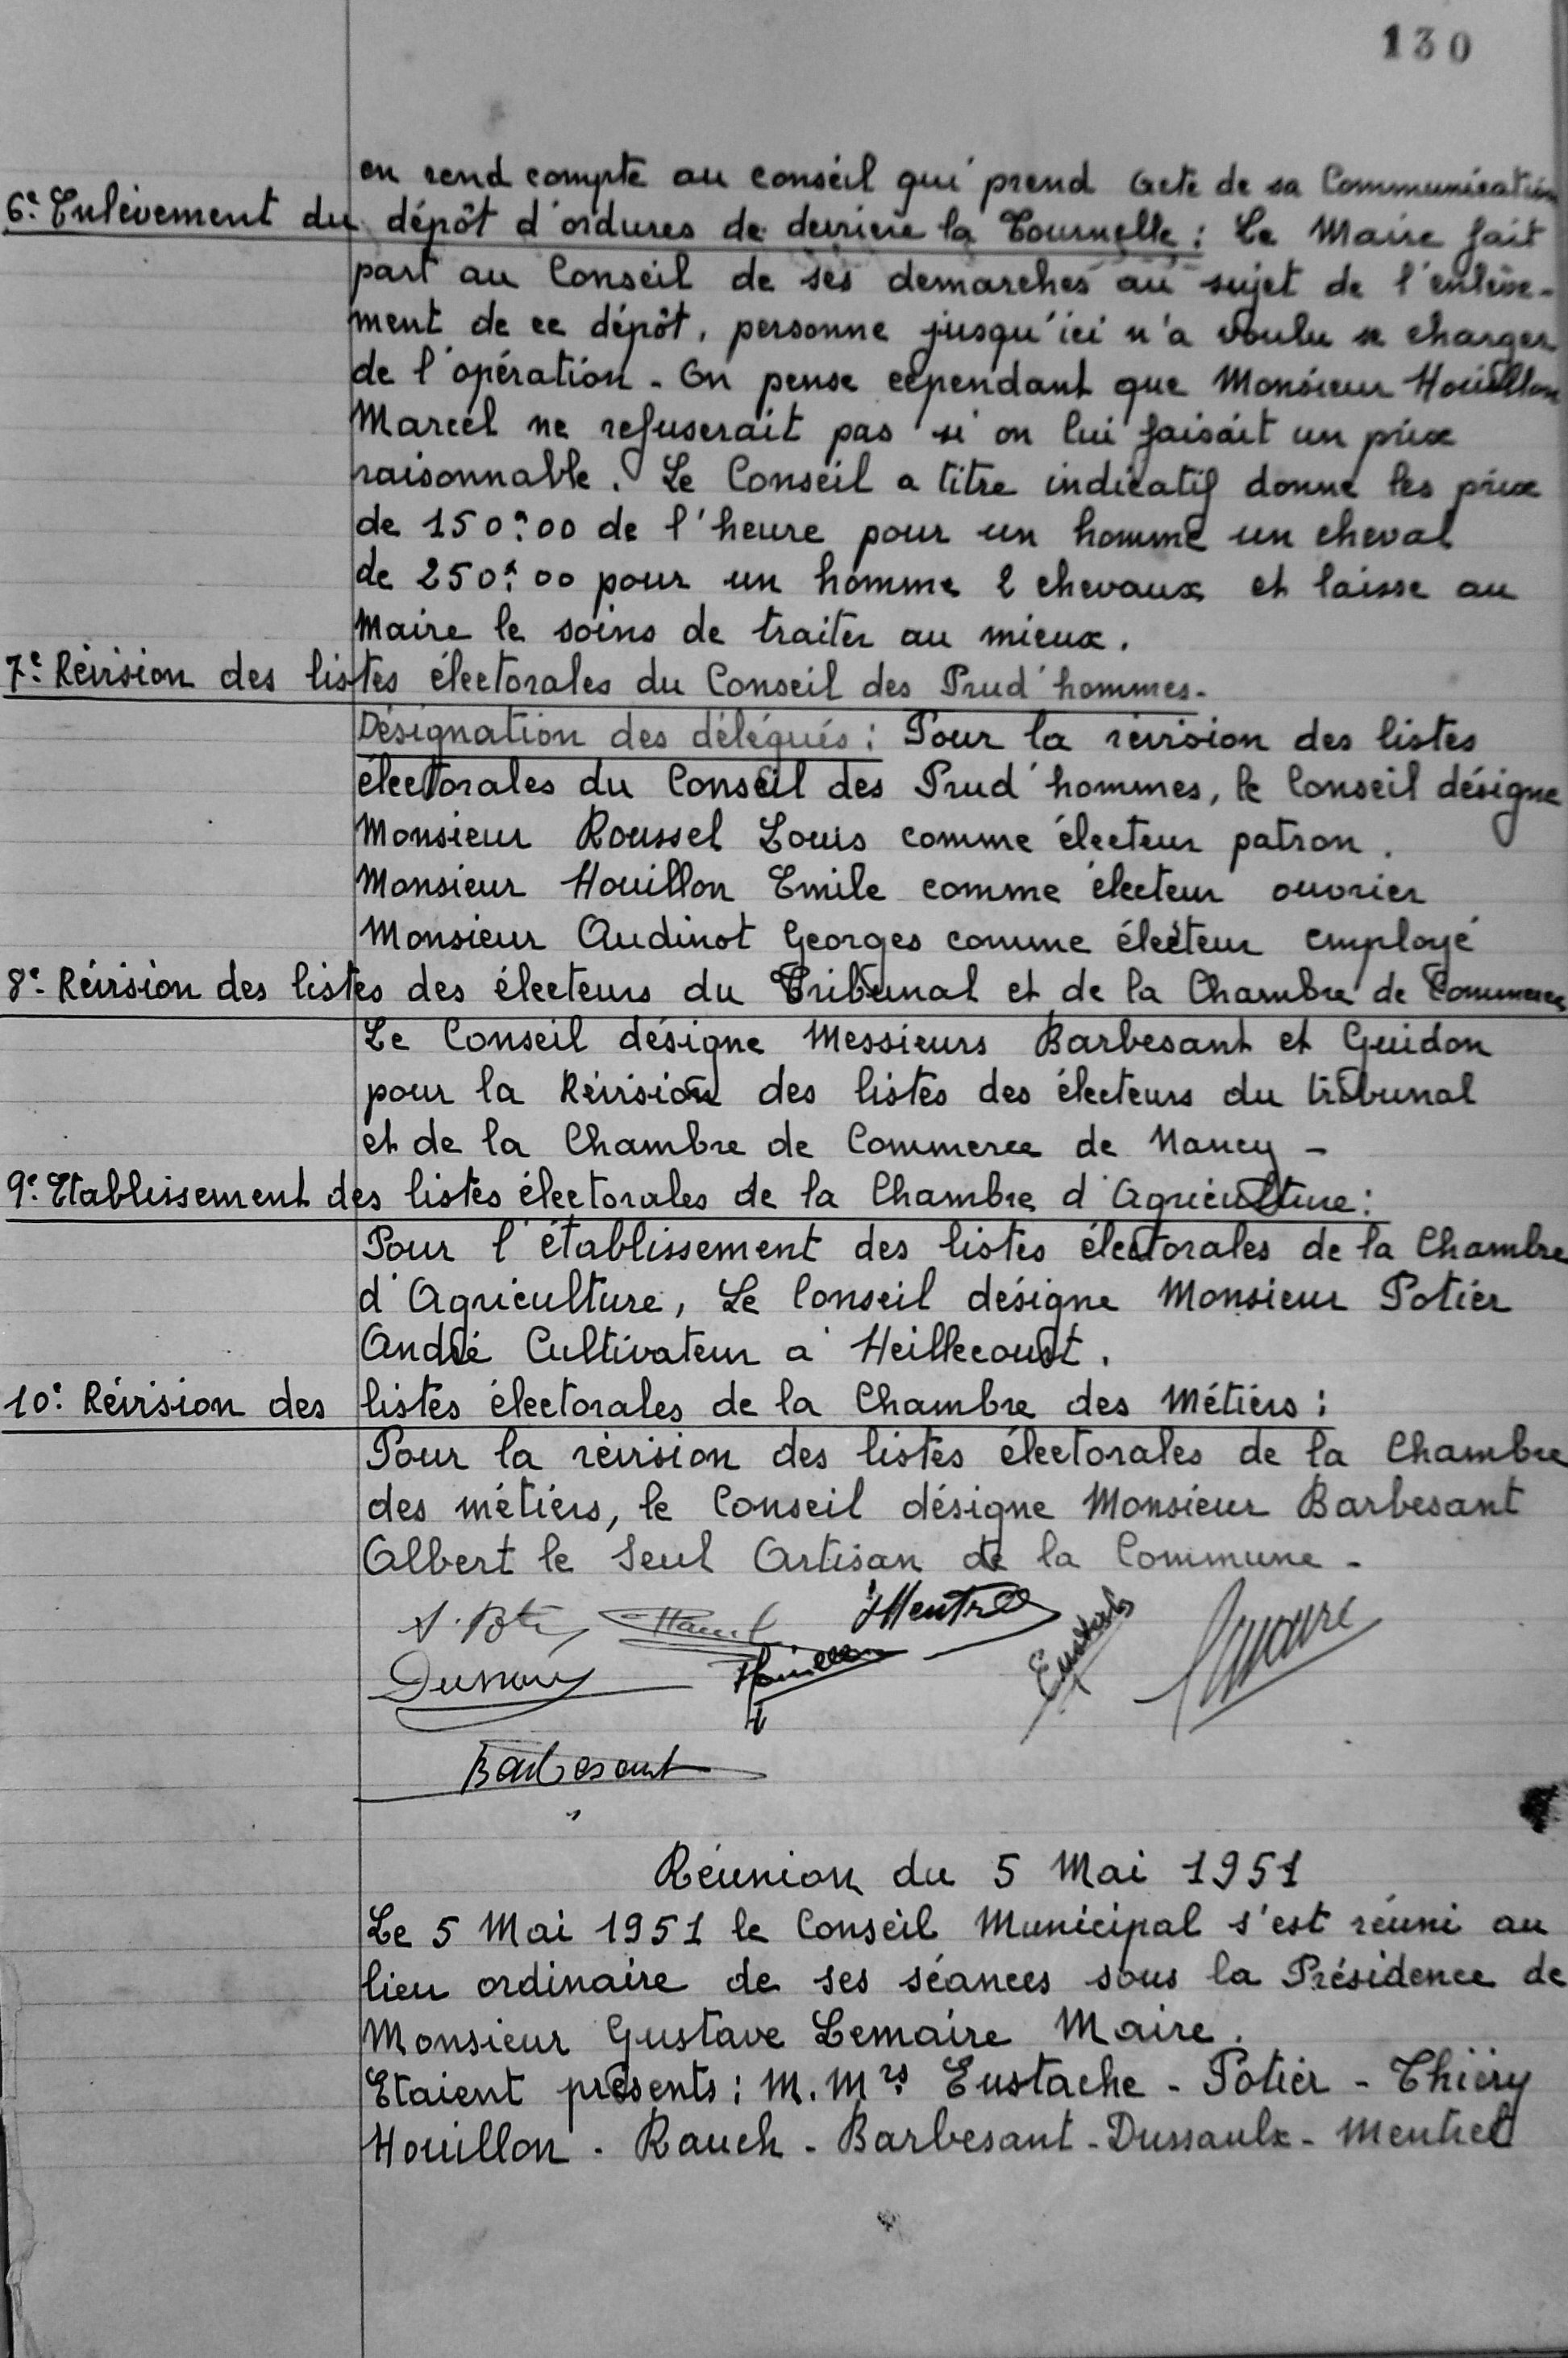 130
en rend compte au conseil qui prend acte de sa Communication
6e. Enlèvement du dépôt d'ordures de derrière la Tournelle : Le Maire fait
part au Conseil de ses demarches au sujet de l'enlève-
ment de ce dépôt, personne jusqu'ici n'a voulu se charger
de l'opération - On pense cependant que Monsieur Houillon
Marcel ne refuserait pas si on lui faisait un prix
raisonnable. Le Conseil a titre indicatif donne les prix
de 150f.00 de l'heure pour un homme un cheval
de 250f.00 pour un homme 2 chevaux et laisse au
Maire le soins de traiter au mieux.
7e. Révision des listes électorales du Conseil des Prud'hommes.
Désignation des délégués : Pour la révision des listes
électorales du Conseil des Prud'hommes, le Conseil désigne
Monsieur Roussel Louis comme électeur patron.
Monsieur Houillon Emile comme électeur ouvrier
Monsieur Audinot Georges comme électeur employé
8e. Révision des listes des électeurs du Tribunal et de la Chambre de Commerce
Le Conseil désigne Messieurs Barbesant et Guidon
pour la Révision des listes des électeurs du tribunal
et de la Chambre de Commerce de Nancy -
9e. Etablissement des listes électorales de la Chambre d'Agriculture :
Pour l'établissement des listes électorales de la Chambre
d'Agriculture, Le Conseil désigne Monsieur Potier
André Cultivateur à Heillecourt.
10e. Révision des listes électorales de la Chambre des Métiers :
Pour la révision des listes électorales de la Chambre
des métiers, le Conseil désigne Monsieur Barbesant
Albert le Seul Artisan de la Commune -
Houillon
Barbesant
Réunion du 5 Mai 1951
Le 5 Mai 1951 le Conseil Municipal s'est réuni au
lieu ordinaire de ses séances sous la Présidence de
Monsieur Gustave Lemaire Maire.
Etaient présents : M.Mrs Eustache - Potier - Thiéry
Houillon - Rauch - Barbesant - Dussaulx - Mentrel